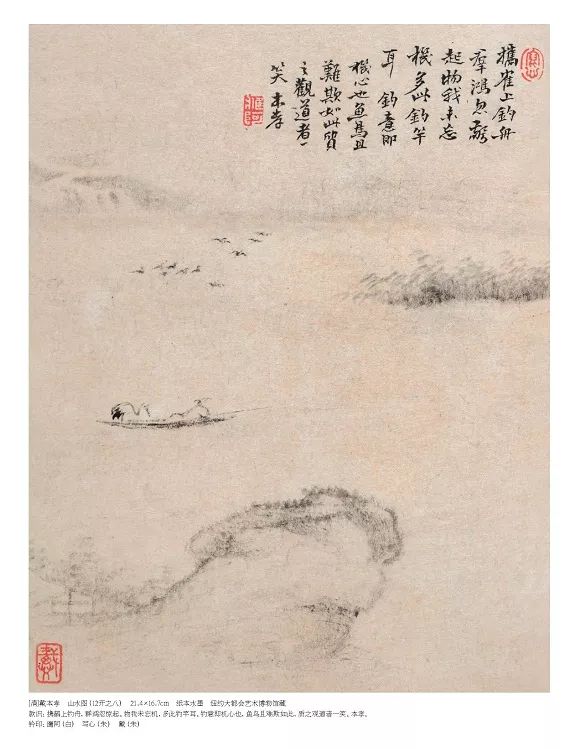 攜隺上釣舟
羣鴻忽驚
起物我未忘
機多此釣竿
耳 釣意即
機心也魚鳥且
難欺如此質
之觀道者一
笑 本孝
鷹阿
戴
[清]戴本孝 山水图(12开之八) 21.4×16.7cm 纸本水墨 纽约大都会艺术博物馆藏
款识：携鹤上钓舟，群鸿忽惊起。物我未忘机，多此钓竿耳。钓意即机心也，鱼鸟且难欺如此，质之观道者一笑。本孝。
钤印：鹰阿(白) 写心(朱) 戴(朱)